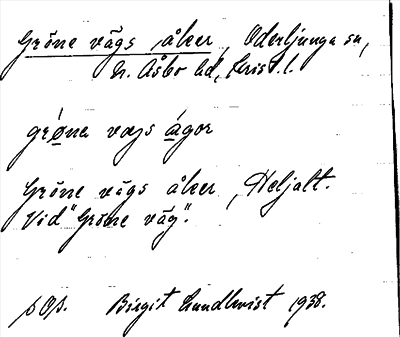 Gröne vägs åker, Oderljunga sn,
N. Åsbo hd, Krist. l.
grø̄na vægs ágor
Gröne vägs åker, Heljalt.
Vid "Gröne väg".
Birgit Lundkvist 1938.